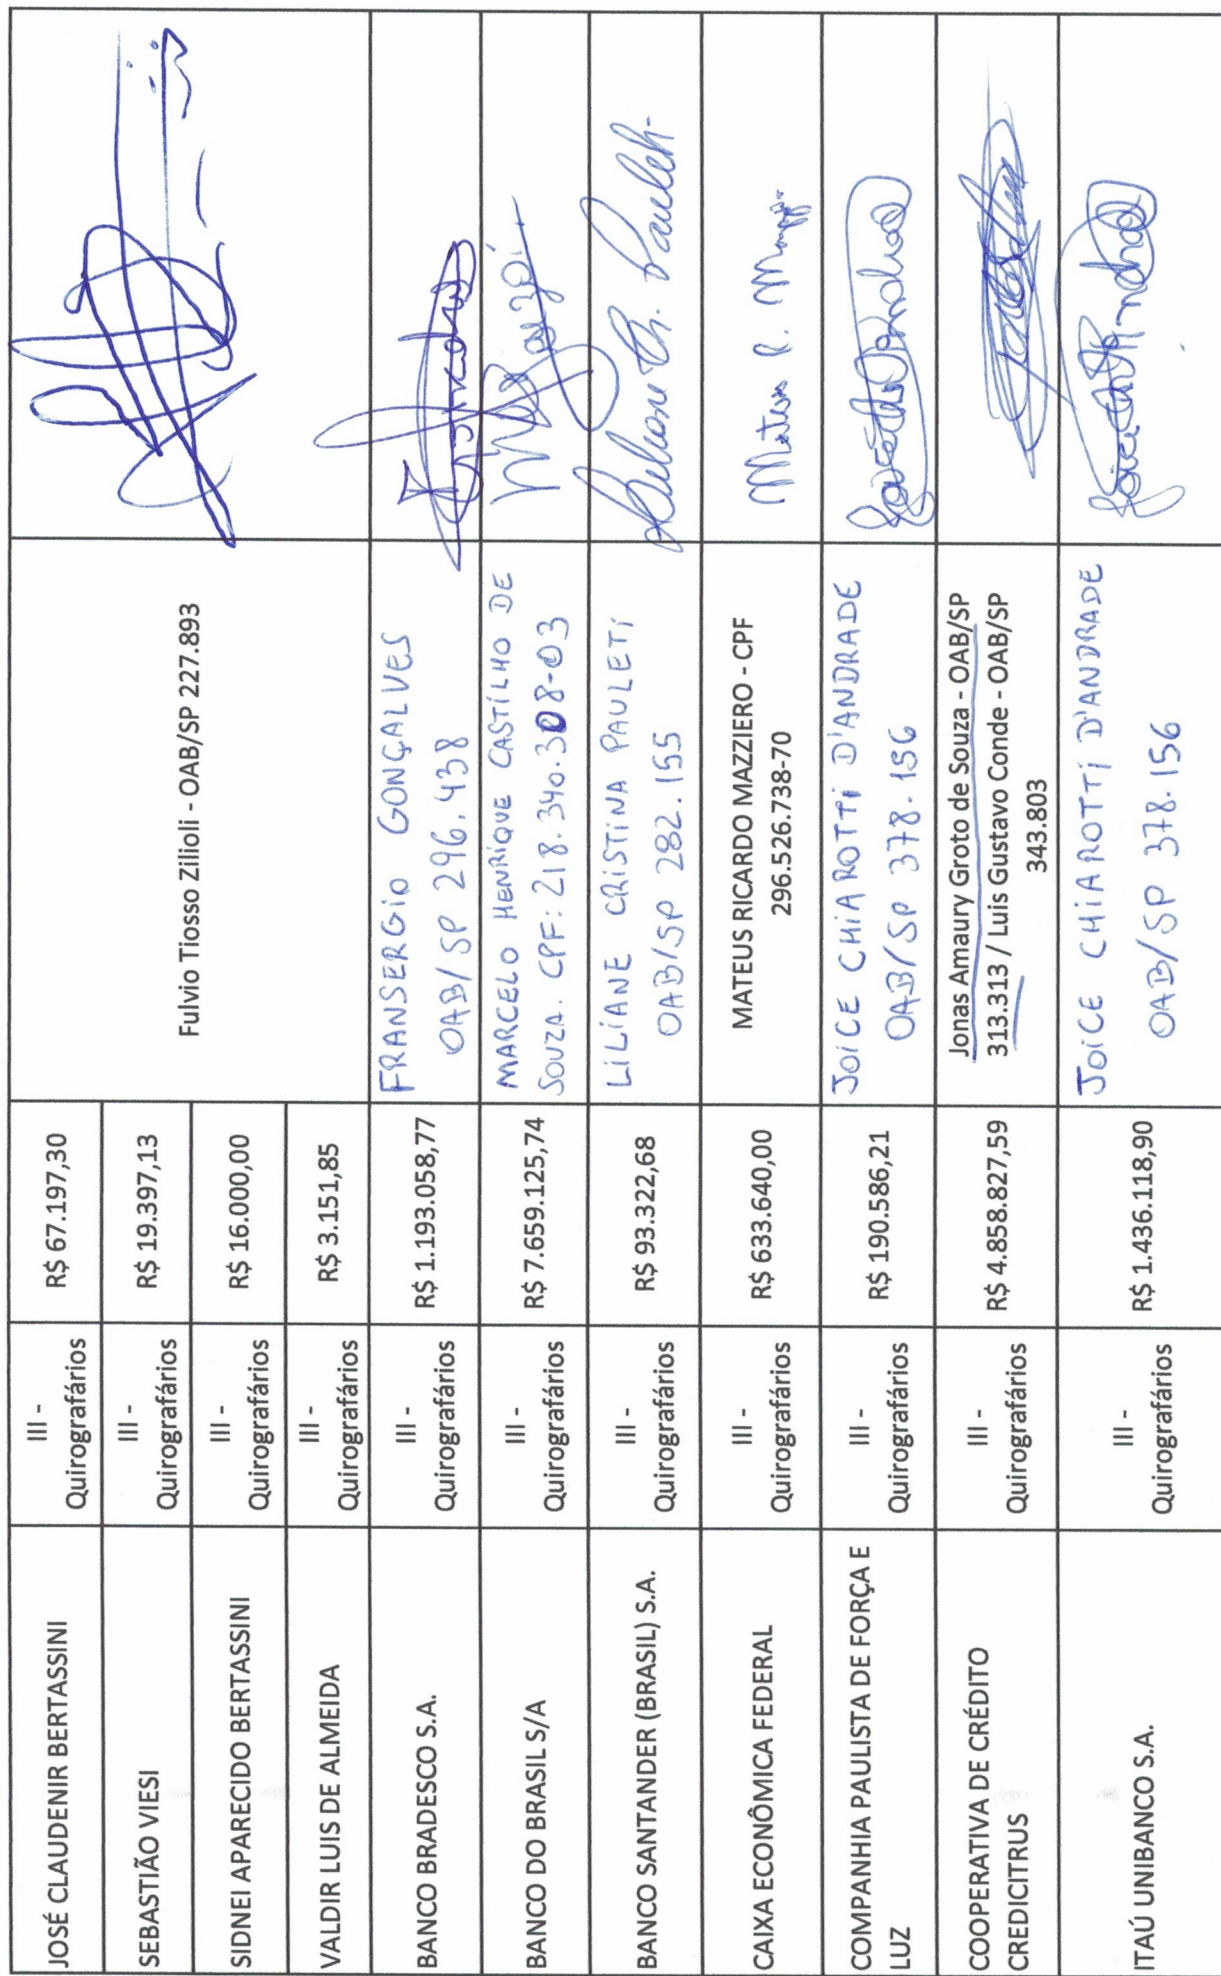 JOSÉ CLAUDENIR BERTASSINI
III -
Quirografários
R$ 67.197,30
Fulvio Tiosso Zilioli - OAB/SP 227.893
SEBASTIÃO VIESI
III -
Quirografários
R$ 19.397,13
SIDNEI APARECIDO BERTASSINI
III -
Quirografários
R$ 16.000,00
VALDIR LUIS DE ALMEIDA
III -
Quirografários
R$ 3.151,85
BANCO BRADESCO S.A.
III -
Quirografários
R$ 1.193.058,77
FRANSERGIO GONÇALVES
OAB/SP 296.438
BANCO DO BRASIL S/A
III -
Quirografários
R$ 7.659.125,74
MARCELO HENRIQUE CASTILHO DE
SOUZA. CPF: 218.340.308-03
BANCO SANTANDER (BRASIL) S.A.
III -
Quirografários
R$ 93.322,68
LILIANE CRISTINA PAULETI
OAB/SP 282.155
CAIXA ECONÔMICA FEDERAL
III -
Quirografários
R$ 633.640,00
MATEUS RICARDO MAZZIERO - CPF
296.526.738-70
Mateus R.
COMPANHIA PAULISTA DE FORÇA E
LUZ
III -
Quirografários
R$ 190.586,21
JOICE CHIAROTTI D'ANDRADE
OAB/SP 378.156
COOPERATIVA DE CRÉDITO
CREDICITRUS
III -
Quirografários
R$ 4.858.827,59
Jonas Amaury Groto de Souza - OAB/SP
313.313 / Luis Gustavo Conde - OAB/SP
343.803
ITAÚ UNIBANCO S.A.
III -
Quirografários
R$ 1.436.118,90
JOICE CHIAROTTI D'ANDRADE
OAB/SP 378.156